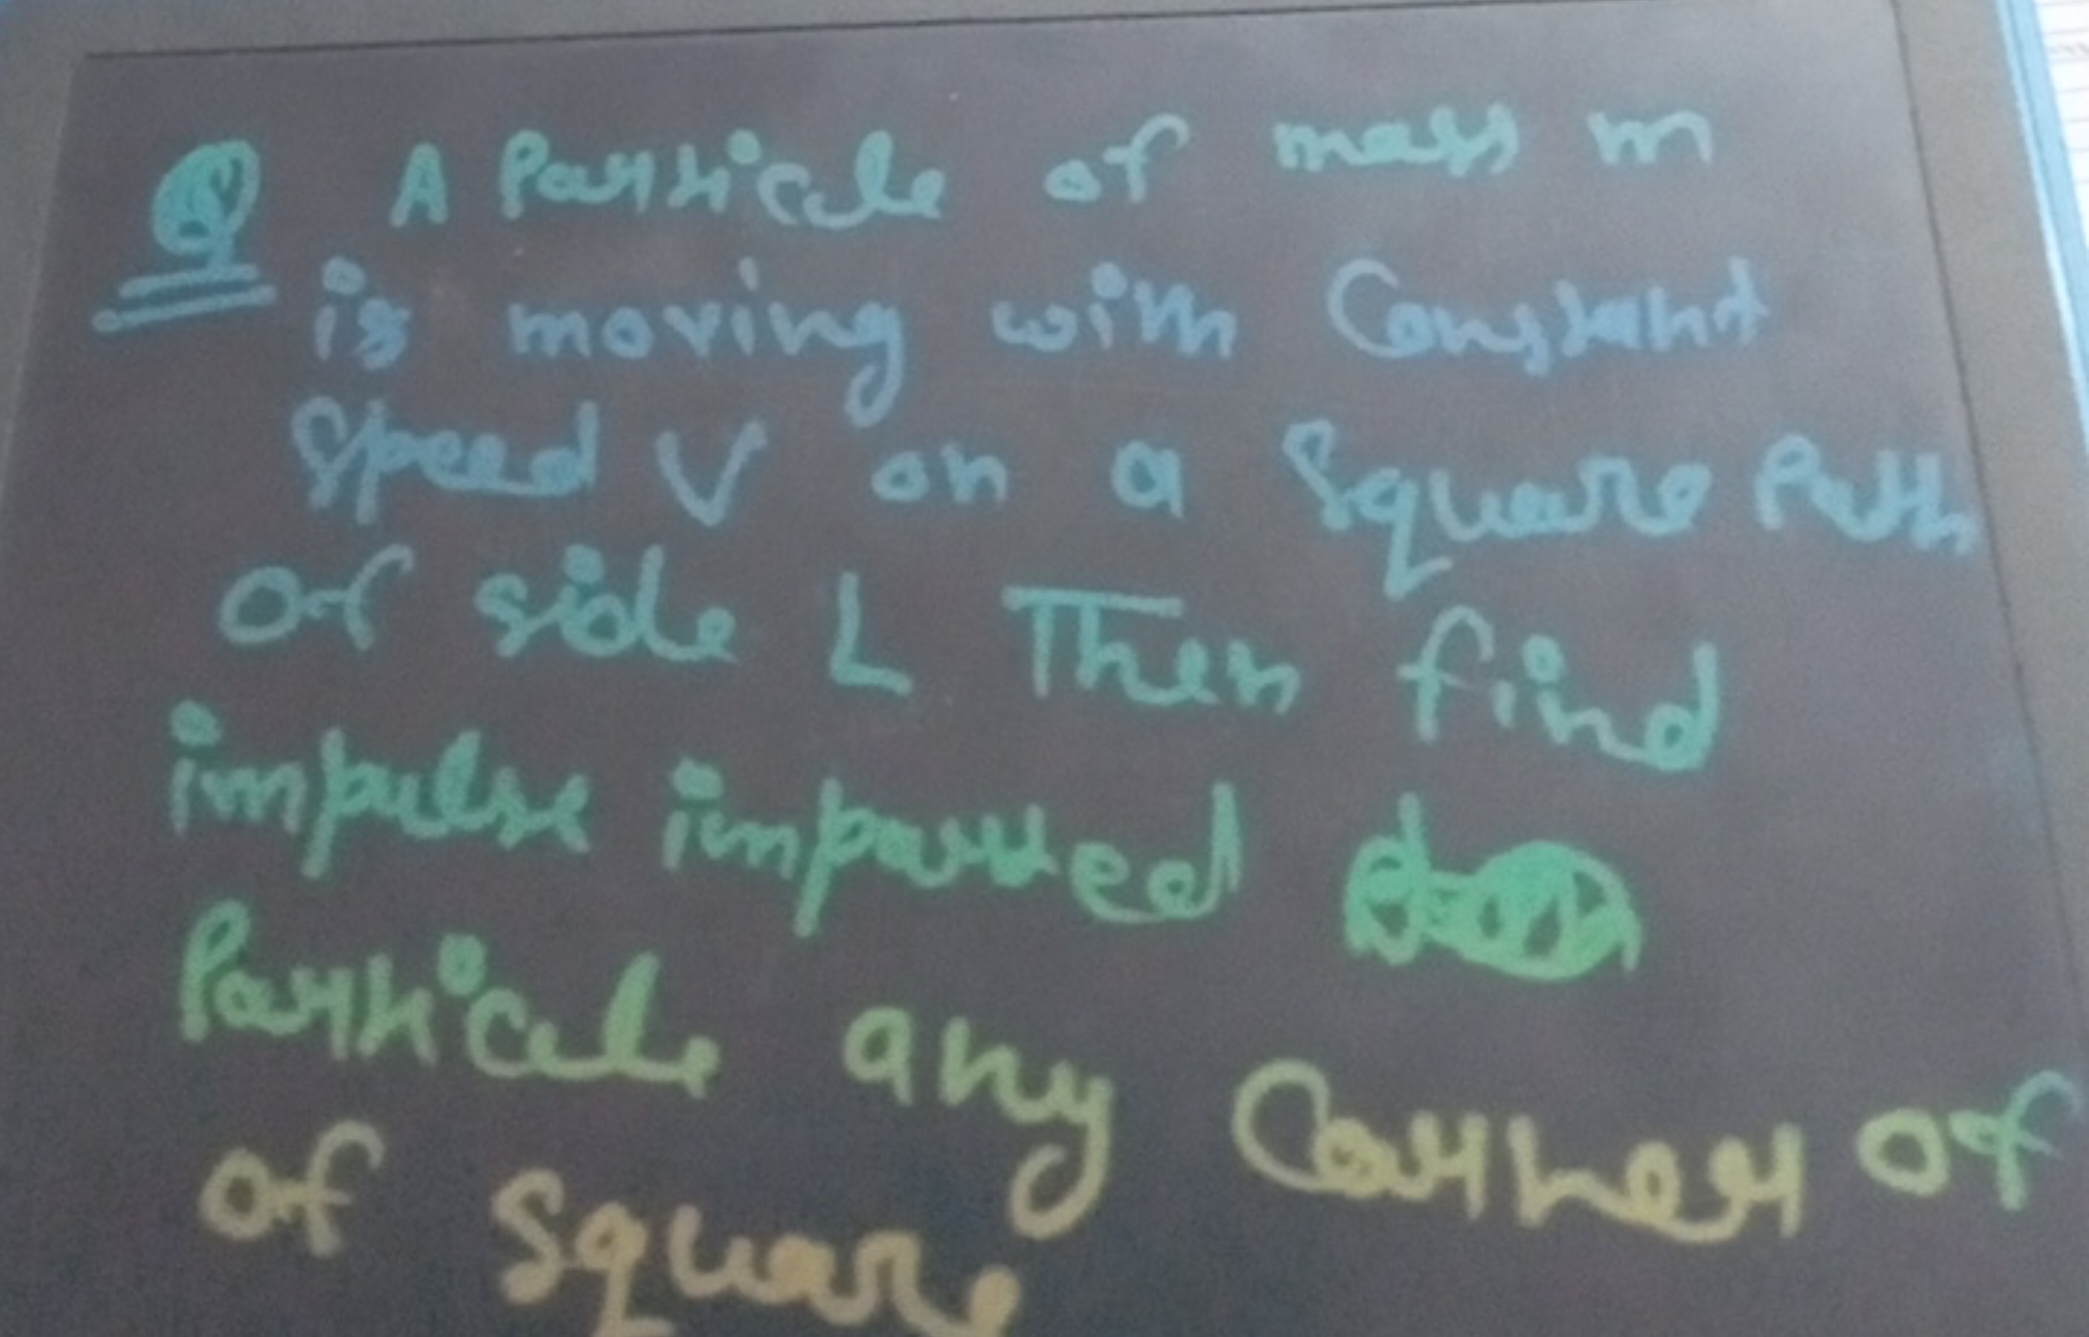 Q A Particle of mass m
is moving with Constant
Speed V on a Square Path
of side L Then find
impulse imparted
Particle any Corner of
of square